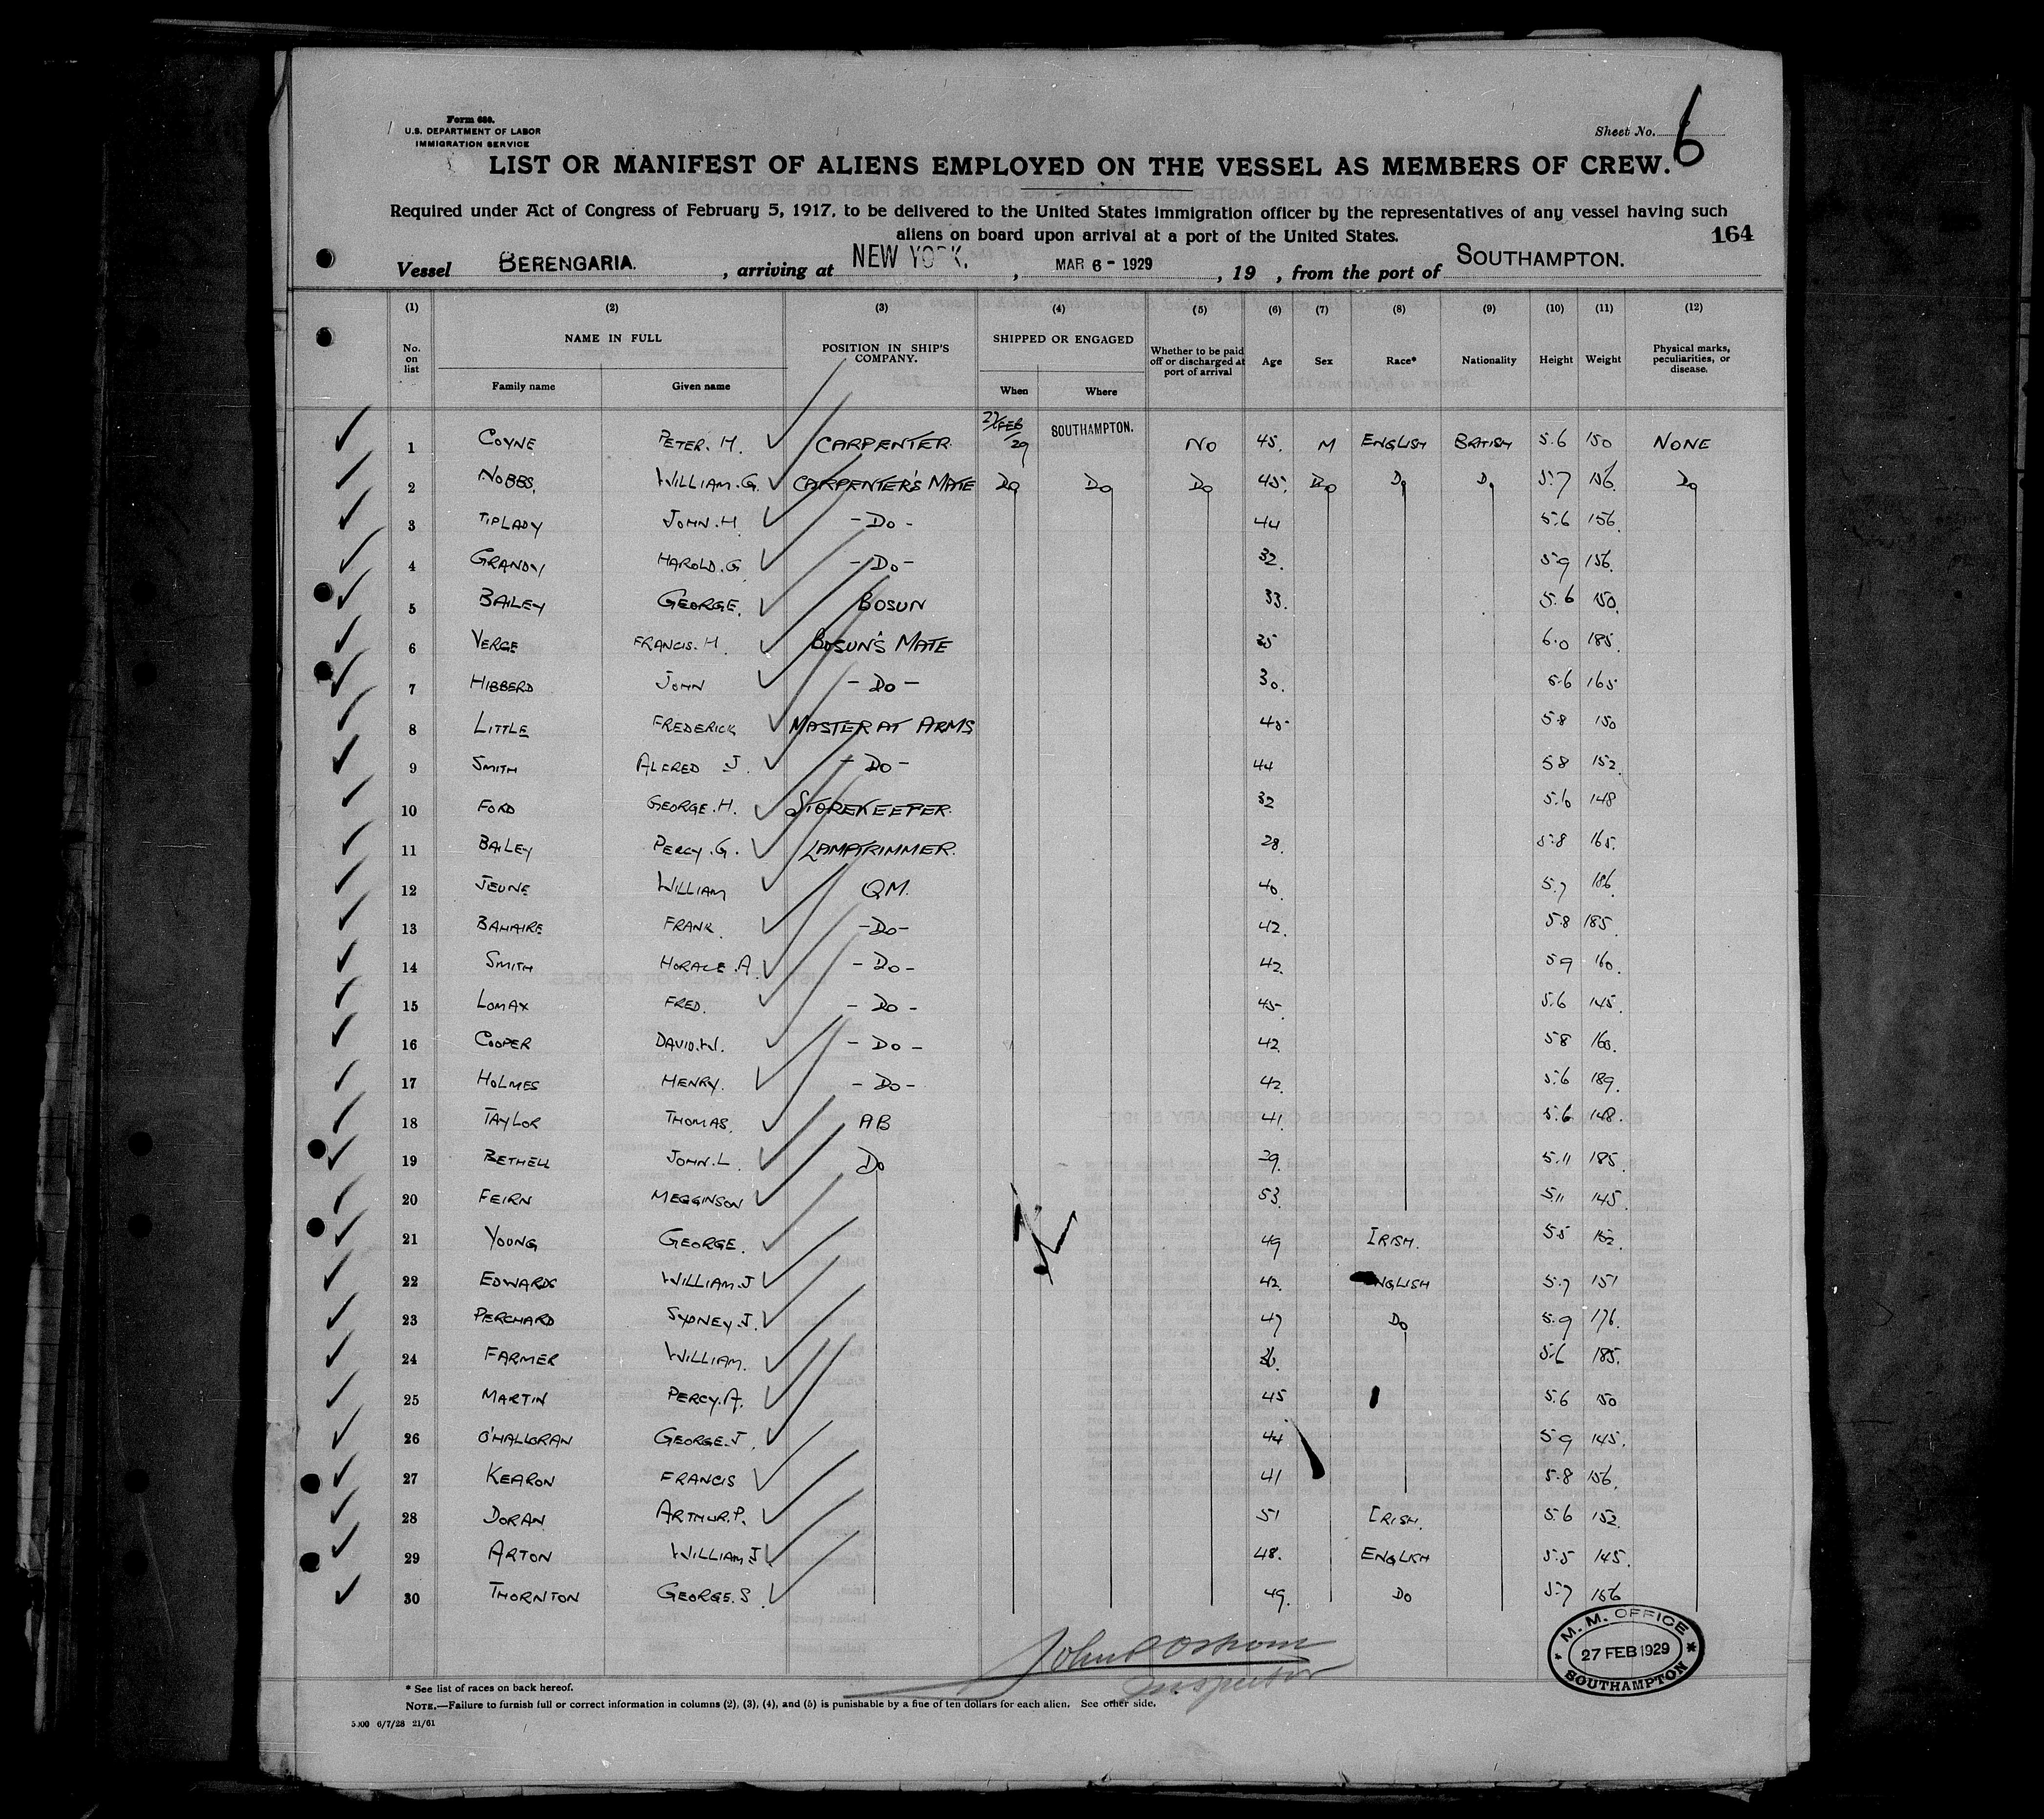 Form 680.
U.S. DEPARTMENT OF LABOR
IMMIGRATION SERVICE
Sheet No. 6
LIST OR MANIFEST OF ALIENS EMPLOYED ON THE VESSEL AS MEMBERS OF CREW.
Required under Act of Congress of February 5, 1917, to be delivered to the United States immigration officer by the representatives of any vessel having such
aliens on board upon arrival at a port of the United States.
164
Vessel BERENGARIA. , arriving at NEW YORK. , MAR 6 - 1929 , 19 , from the port of SOUTHAMPTON.
(1) (2) (3) (4) (5) (6) (7) (8) (9) (10) (11) (12)
No. on list NAME IN FULL Family name Given name POSITION IN SHIP'S COMPANY. SHIPPED OR ENGAGED When Where Whether to be paid off or discharged at port of arrival Age Sex Race* Nationality Height Weight Physical marks, peculiarities, or disease.
1 COYNE PETER. H. CARPENTER. 27 FEB 29 SOUTHAMPTON. NO 45. M ENGLISH BRITISH 5.6 150 NONE
2 NOBBS. WILLIAM. G. CARPENTER'S MATE Do Do Do 45. Do Do Do 5.7 156. Do
3 TIPLADY JOHN. H - Do - 44 5.6 156.
4 GRANDY HAROLD. G - Do - 32. 5.9 156.
5 BAILEY GEORGE. BOSUN 33. 5.6 150.
6 VERGE FRANCIS. H. BOSUN'S MATE 35 6.0 185.
7 HIBBERD JOHN - Do - 30. 5.6 165
8 LITTLE FREDERICK MASTER AT ARMS 45 5.8 150
9 SMITH ALFRED J. - Do - 44 5.8 152.
10 FORD GEORGE. H. STOREKEEPER. 32 5.6 148
11 BAILEY PERCY. G. LAMPTRIMMER. 28. 5.8 165.
12 JEUNE WILLIAM QM. 40. 5.7 186.
13 BAHAIRE FRANK. - Do - 42. 5.8 185.
14 SMITH HORACE. A. - Do - 42. 5.9 160.
15 LOMAX FRED. - Do - 45. 5.6 145.
16 COOPER DAVID. W. - Do - 42. 5.8 160.
17 HOLMES HENRY. - Do - 42. 5.6 189.
18 TAYLOR THOMAS. AB 41. 5.6 148.
19 BETHELL JOHN. L. Do 39. 5.11 185.
20 FEIRN MEGGINSON 53. 5.11 145.
21 YOUNG GEORGE. 49 IRISH. 5.5 152.
22 EDWARDS WILLIAM. J 42. ENGLISH 5.7 151
23 PERCHARD SYDNEY. J. 47 Do 5.9 176.
24 FARMER WILLIAM. 5.6 185.
25 MARTIN PERCY. A. 45 5.6 150
26 O'HALLORAN GEORGE. J. 44 5.9 145.
27 KEARON FRANCIS 41 5.8 156.
28 DORAN ARTHUR. P. 51 IRISH. 5.6 152.
29 ARTON WILLIAM J. 48. ENGLISH 5.5 145.
30 THORNTON GEORGE. S. 49. DO 5.7 156
M. M. OFFICE
27 FEB 1929
SOUTHAMPTON
Inspector
* See list of races on back hereof.
NOTE.—Failure to furnish full or correct information in columns (2), (3), (4), and (5) is punishable by a fine of ten dollars for each alien. See other side.
5000 6/7/28 21/61